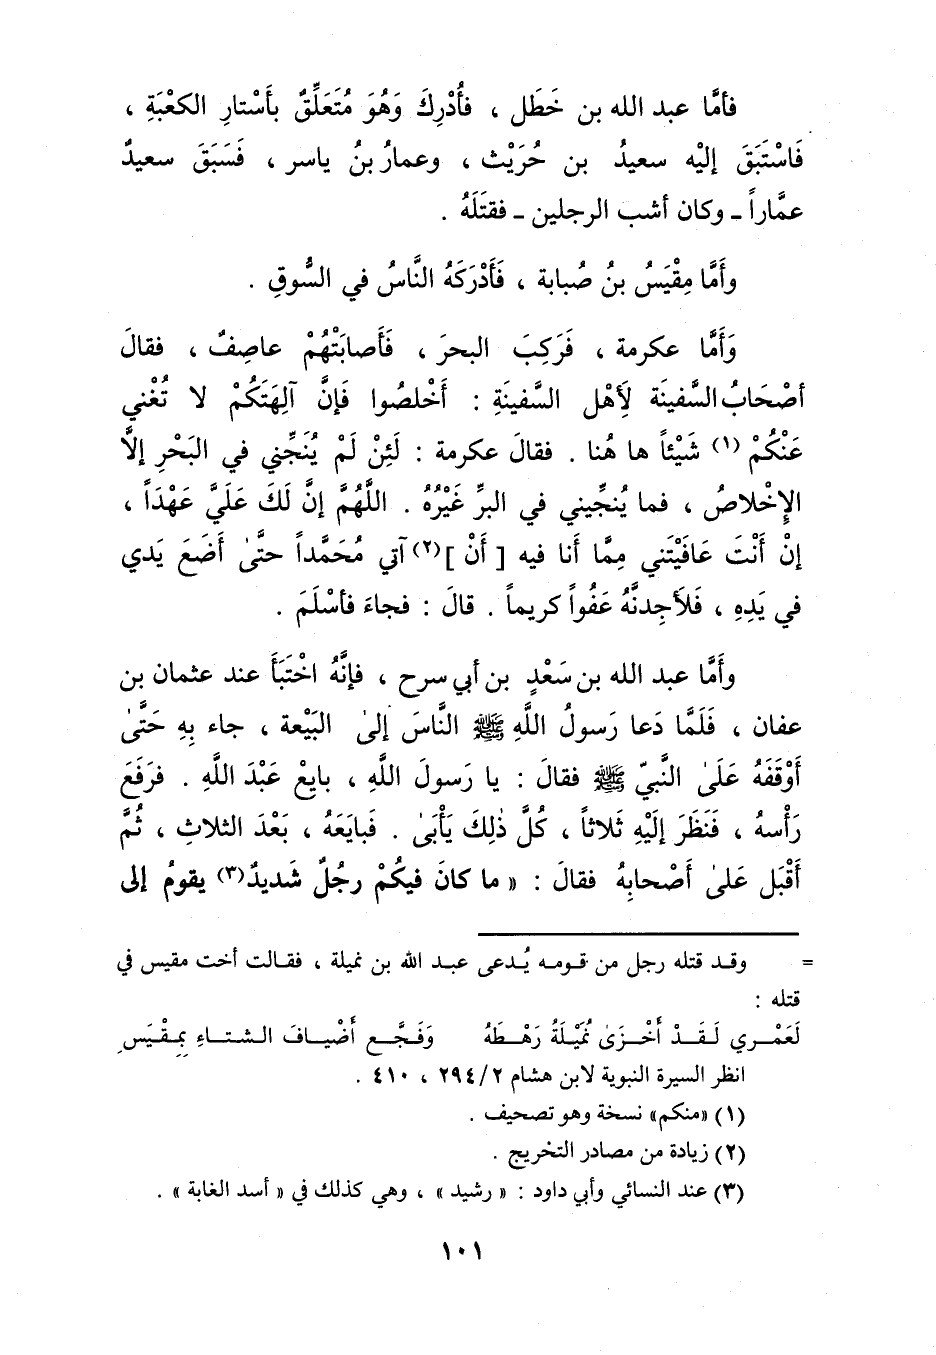 فأمَّا عبد الله بن خَطَل ، فأُدْرِكَ وَهُوَ مُتَعَلِّقٌ بأَسْتارِ الكعْبَةِ ،
فَاسْتَبَقَ إليْه سعيدُ بن حُرَيْث ، وعمارُ بنُ ياسر ، فَسَبَقَ سعيدٌ
عمَّاراً ـ وكان أشب الرجلين ـ فقتَلَهُ .
وأَمَّا مِقْيَسُ بنُ صُبابة ، فَأَدْرَكَهُ النَّاسُ في السُّوقِ .
وَأَمَّا عكرمة ، فَرَكِبَ البحرَ ، فَأَصابَتْهُمْ عاصِفٌ ، فقالَ
أصْحَابُ السَّفينَة لِأَهْل السَّفينَةِ : أَخْلصُوا فَإنَّ آلِهَتَكُمْ لا تُغْني
عَنْكُمْ (١) شَيْئاً ها هُنا . فقالَ عكرمة : لَئِنْ لَمْ يُنَجِّني في البَحْرِ إلاَّ
الإِخْلاصُ ، فما يُنجِّيني في البرِّ غَيْرُهُ . اللَّهُمَّ إنَّ لَكَ عَلَيَّ عَهْدَاً ،
إنْ أَنْتَ عَافَيْتَني مِمَّا أَنا فيه [ أَنْ ](٢) آتي مُحَمَّداً حتَّىٰ أَضَعَ يَدي
في يَدِهِ ، فَلأَجِدنَّهُ عَفُواً كريماً . قالَ : فجاءَ فأسْلَمَ .
وأَمَّا عبد الله بن سَعْدٍ بن أبي سرح ، فإنَّهُ اخْتَبَأَ عند عثمان بن
عفان ، فَلَمَّا دَعا رَسولُ اللَّهِ ﷺ النَّاسَ إلىٰ البَيْعة ، جاء بِهِ حَتَّىٰ
أَوْقَفَهُ عَلَىٰ النَّبيّ ﷺ فقالَ : يا رَسولَ اللَّهِ ، بايعْ عَبْدَ اللَّهِ . فرَفَعَ
رَأْسهُ ، فَنَظَرَ إلَيْهِ ثَلاثاً ، كُلَّ ذٰلِكَ يَأْبَىٰ . فَبايَعَهُ ، بَعْدَ الثلاثِ ، ثُمَّ
أَقْبَل عَلىٰ أَصْحابِهُ فقالَ : « ما كانَ فيكُمْ رجُلٌ شَديدٌ(٣) يقومُ إلى
= وقد قتله رجل من قومه يُدعى عبد الله بن نميلة ، فقالت أخت مقيس في
قتله :
لَعَمْري لَقَدْ أَخْزَىٰ نُمَيْلَةُ رَهْطَهُ وَفَجَّع أَضْيافَ الشتاءِ بِمقْيَسِ
انظر السيرة النبوية لابن هشام ٢/٢٩٤ ، ٤١٠ .
(١) «منكم» نسخة وهو تصحيف .
(٢) زيادة من مصادر التخريج .
(٣) عند النسائي وأبي داود : « رشيد » ، وهي كذلك في « أسد الغابة » .
١٠١